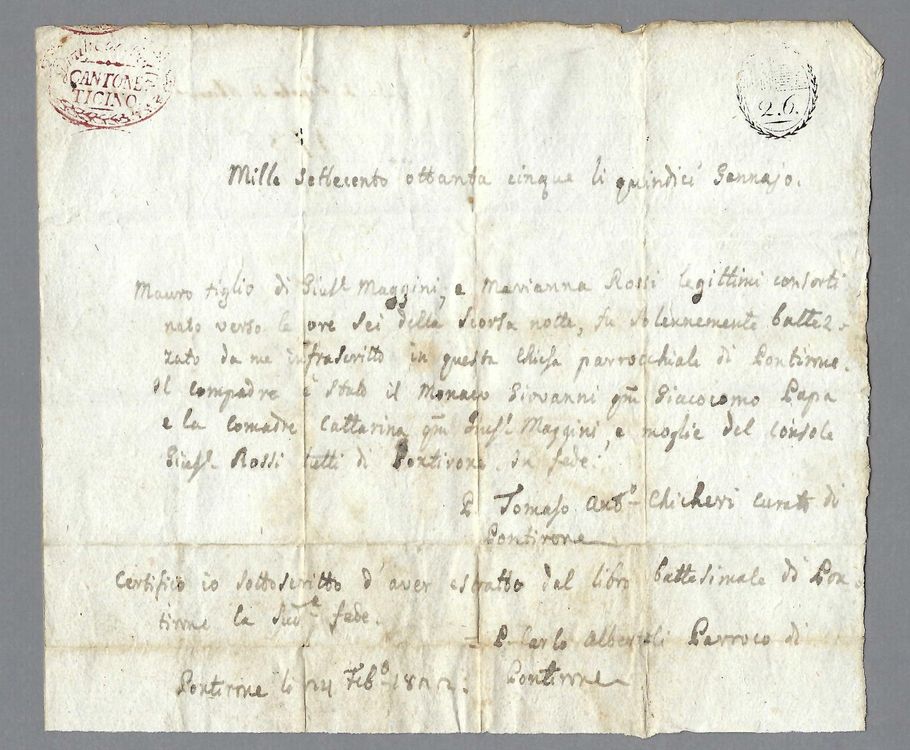 CANTONE
TICINO
2.6.
Mille Settecento ottanta cinque li quindici Gennajo.
Mauro figlio di Giusᵉ Maggini, e Marianna Rossi legittimi consorti
nato verso le ore sei della scorsa notte, fu solennemente battez-
zato da me infrascritto in questa Chiesa parrocchiale di Pontirone.
Il compadre è stato il Monaco Giovanni qm Giacocomo Papa
e la comadre Cattarina qm Giusᵉ Maggini, e moglie del console
Giusᵉ Rossi tutti di Pontirone, In fede.
P. Tomaso Antᵒ Chicheri curato di
Pontirone
Certifico io sottoscritto d'aver estratto dal libro battesimale di Pon-
tirone la Sudᵃ fede.
P. Carlo Alberti Parroco di
Pontirone li 24 Febᵒ
Pontirone